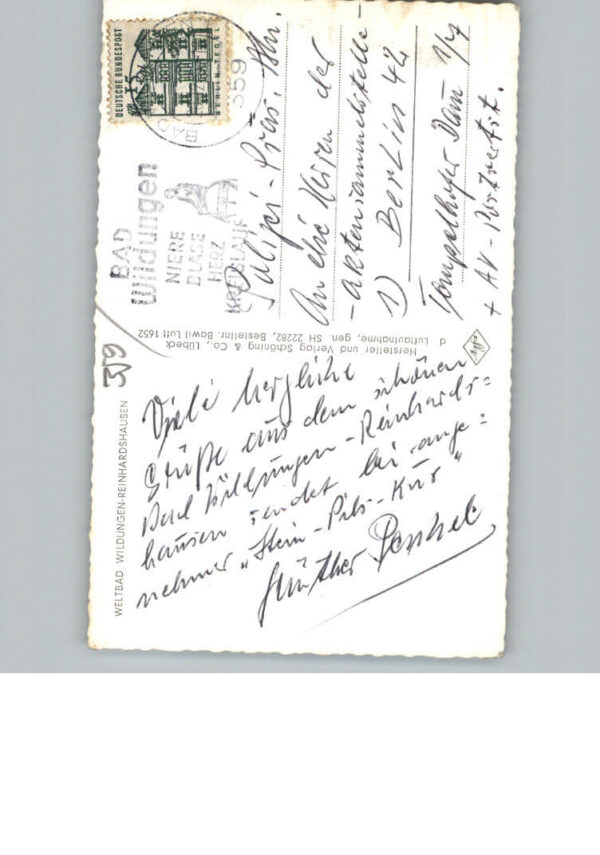 WELTBAD WILDUNGEN-REINHARDSHAUSEN
359
Viele herzliche
Grüße aus dem schönen
Bad Wildungen-Reinhards=
hausen sendet bei ange=
nehmer "Stein-Pils-Kur"
Günther
Hersteller und Verlag Schöning & Co., Lübeck
d Luftaufnahme, gen. SH 22282, Bestellnr. Bawil Luft 1652
DEUTSCHE BUNDESPOST
BERLIN-TEGEL
BAD
359
BAD
Wildungen
NIERE
BLASE
HERZ
KREISLAUF
Polizei-Präs. Bln.
An die Herren der
-Aktensammelstelle-
1) Berlin 42
Tempelhofer Damm 1/7